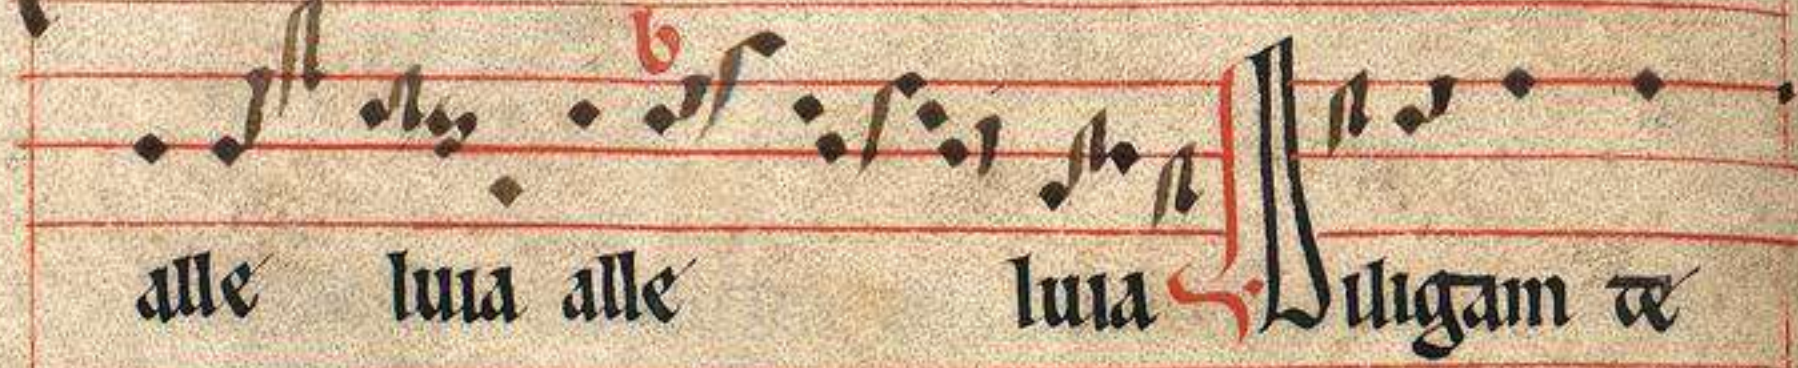 alle luia alle luia Diligam te